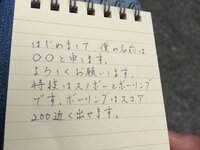 はじめまして、僕の名前は
〇〇と申します。
よろしくお願いします。
特技はスノボーとボーリング
です。ボーリングはスコア
200近く出せます。